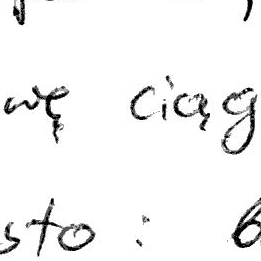 wę ciąg
sto :